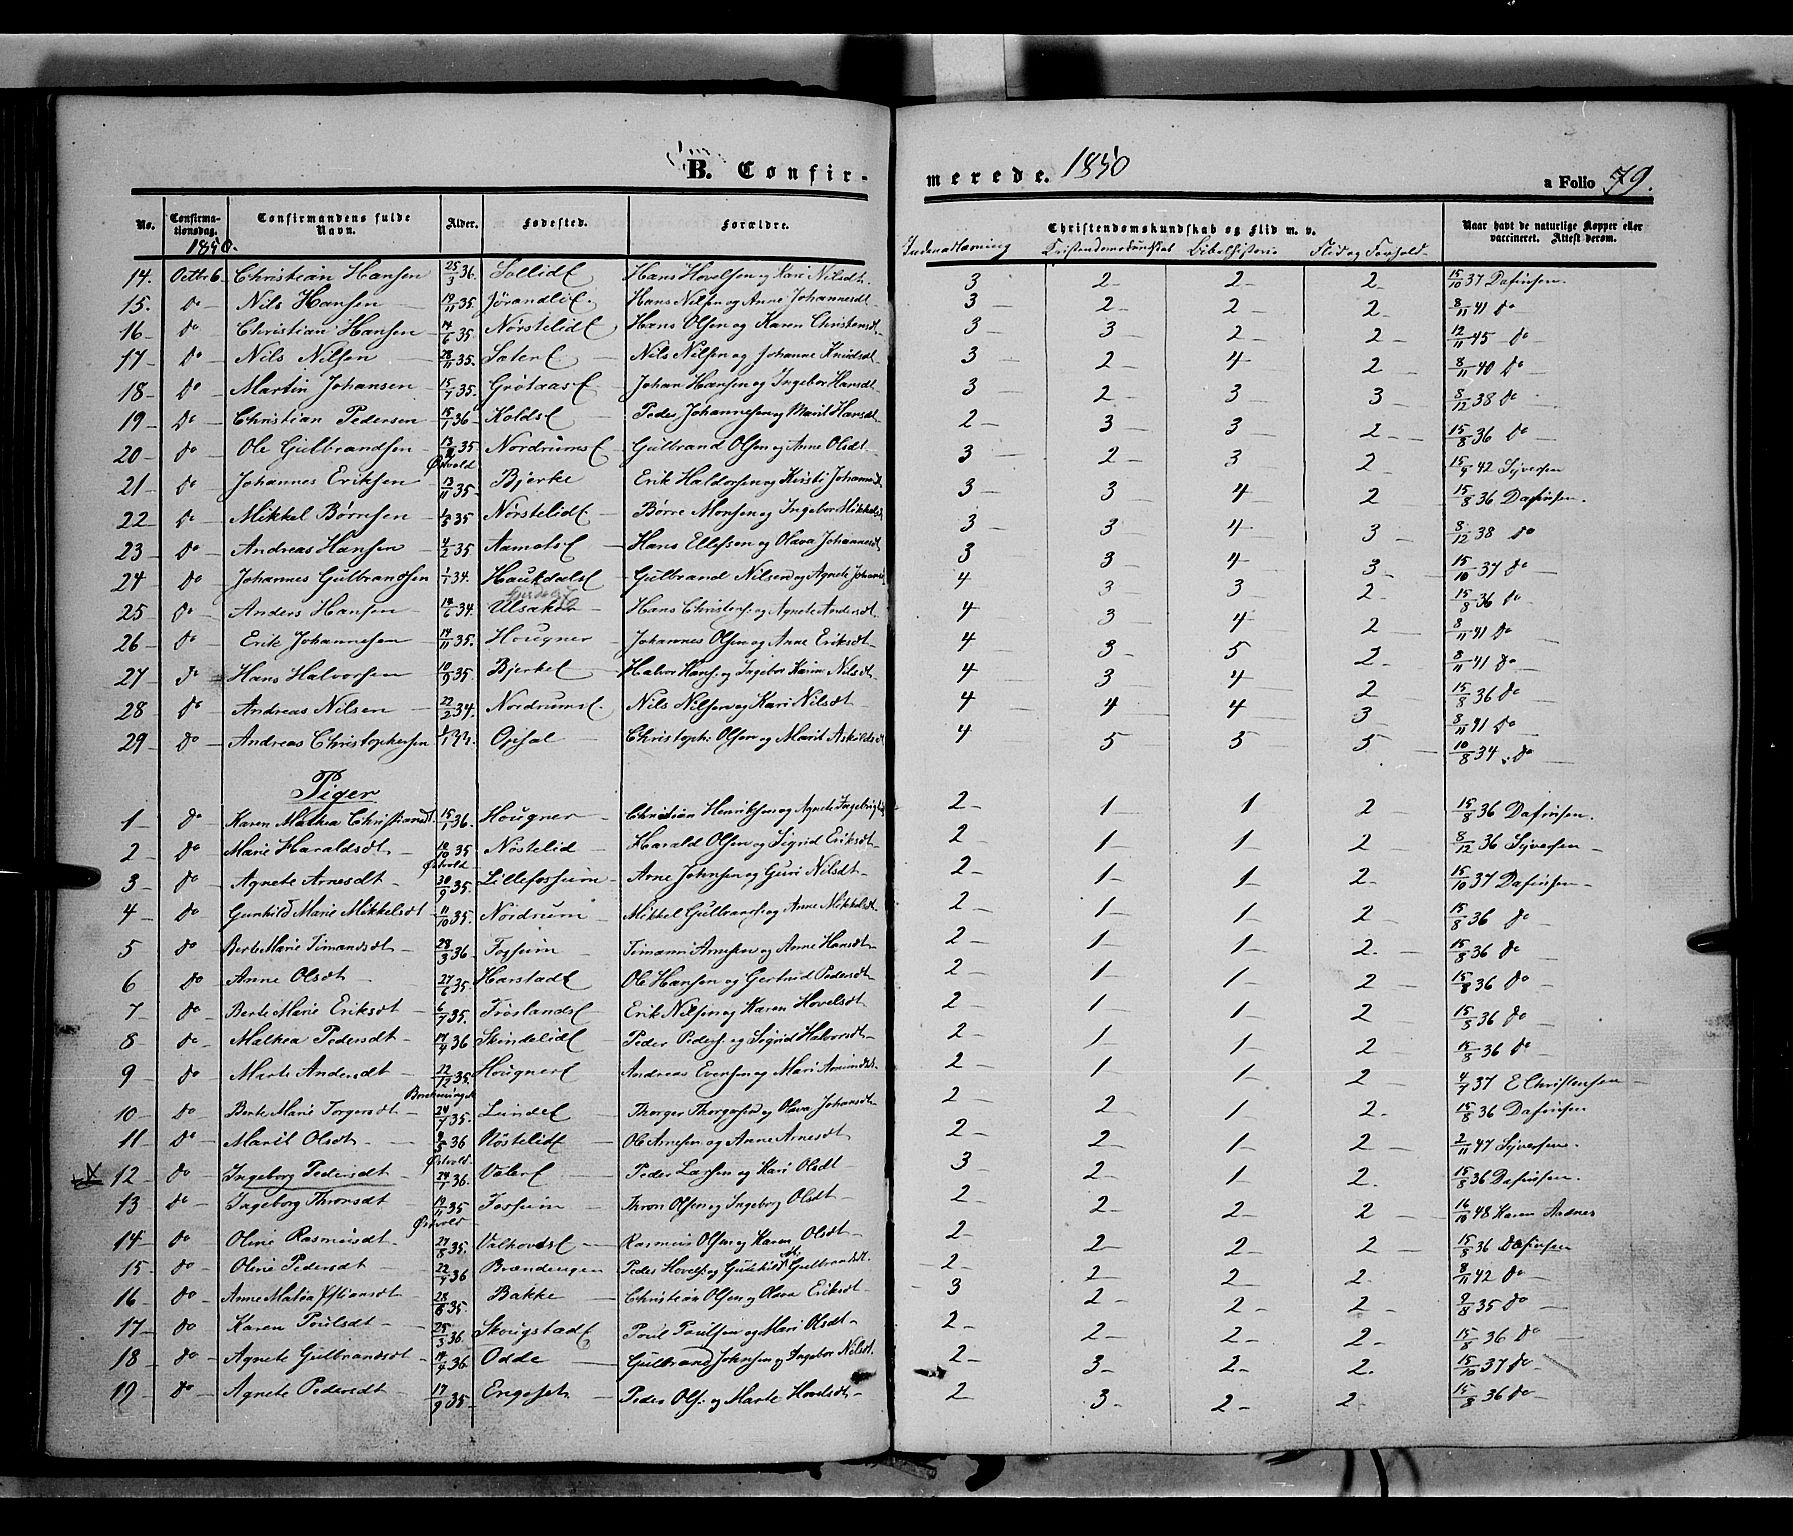 B. Confir-
merede. 1850
a Folio 79.
No. Confirma-tionsdag. Confirmandens fulde Navn. Alder. Fødested. Forældre. Christendomskundskab og Flid m. v. Naar havt de naturlige Kopper eller vaccineret. Attest derom.
1850. Indenadlæsning Kristendomskundskab Bibelhistorie Flid og Forhold
14. Octbr 6 Christian Hansen 25/3 36. Sollid Hans Hovelsen og Kari Nilsdt. 3 2 2 2 15/10 37 Dafinsen.
15. do Nils Hansen 19/11 35. Jørandlie Hans Nilsen og Anne Johannesdt 3 2 2 2 8/11 41 do
16 do Christian Hansen 14/6 35 Nørstelid Hans Olsen og Karen Christensdt 3 3 2 2 12/11 45 do
17 do Nils Nilsen 28/11 35. Sæter Nils Nilsen og Johanne Knudsdt 3 2 4 2 8/11 40 do
18 do Martin Johansen 15/7 35. Grøtaas Johan Hansen og Ingebor Hansdt 3 2 3 3 8/12 38 do
19 do Christian Pedersen 15/1 36 Kolds Peder Johannesen og Marit Hansdt 2 3 3 2 15/8 36 do
20 do Ole Gulbrandsen 35 Nordrums Gulbrand Olsen og Anne Olsdt 3 2 3 2 15/9 42 Syversen
Østvold
21 do Johannes Eriksen 13/11 35 Bjerke Erik Haldorsen og Kirsti Johannesdt 3 3 4 2 15/8 36 Dafinsen.
22 do Mikkel Børresen 35 Nørstelid Børre Monsen og Ingebor Mikkelsdt 3 3 4 3 8/12 38 do
23 do Andreas Hansen 4/2 35 Aamots Hans Ellefsen og Olava Johannesdt 3 3 4 3 15/10 37 do
24 do Johannes Gulbrandsen 1/1 34. Haukdals Gulbrand Nilsen og Agnete Johans 4 3 3 2 15/8 36 do
25 do Anders Hansen 14/6 34. Ulsaker Hans Christens. og Agnete Andersdt 4 3 4 2 8/11 41 do
26 do Erik Johannesen 14/11 35. Hougner Johannes Olsen og Anne Eriksdt 4 3 5 2 8/11 41 do
27 do Hans Halvorsen 10/9 35 Bjerke Halvor Hans. og Ingebor Karine Nilsdt 4 3 4 2 15/8 36 do
28 do Andreas Nilsen 22/2 34. Nordrums Nils Nilsen og Kari Nilsdt 4 4 4 3 8/11 41 do
29 do Andreas Christophersen Opsal Christoph: Olsen og Marit Askildsdt 4 5 5 5 10/8 34 do
Piger
1 do Karen Mathea Christiansdt. 15/1 36. Hougner Christian Henriksen og Agnete Ingebrigtsdt 2 1 1 2 15/8 36 Dafinsen.
2 do Marie Haraldsdt 10/10 35 Nøstelid Harald Olsen og Sigrid Eriksdt 2 1 1 2 8/12 36 Syversen
Østvold
3 do Agnete Arnesdt 30/9 35. Lillefossum Arne Johnsen og Guri Nilsdt 2 1 1 2 15/10 37 Dafinsen
4 do Gunhild Marie Mikkelsdt 11/10 35. Nordrum Mikkel Gulbrands. og Anne Mikkelsdt 2 1 1 2 15/8 36 do
5 do Berte Marie Timandsdt 28/3 36 Fossum Timann Arnesen og Anne Hansdt 2 1 1 2. 15/8 36 do
6 do Anne Olsdt 27/6 35 Harstad Ole Hansen og Gertrud Pedersdt 2 1 1 2 15/8 36 do
7 do Berte Marie Eriksdt 6/7 35. Frøslands Erik Nilsen og Karen Hovelsdt 2 1 1 2 15/8 36 do
8 do Mathea Pedersdt 17/4 36 Skindelid Peder Peders. og Sigrid Halvorsdt 2 1 1 2 15/8 36 do
9 do Marte Andersdt 22/12 35. Hougner Andreas Evensen og Mari Amundsdt 2 1 1 2 4/7 37 E Christensen
10 do Berte Marie Torgersdt 24/7 35. Lunde Thorger Thorgersen og Olava Johansdt 2 2 1 2. 15/8 36 Dafinsen
11 do Marit Olsdt 36 Nøstelid Ole Arnesen og Anne Arnesdt 2 2 1 2 2/11 47 Syversen.
Østvold.
12 do Ingeborg Pedersdt 24/1 36. Vøler Peder Larsen og Kari Olsdt 3 2 1 2. 15/8 36 Dafinsen.
13 do Ingeborg Thronsdt 19/11 35 Fossum Thron Olsen og Ingeborg Olsdt 2 2 2 2 16/10 48 Karen Aadnes
Østvold
14 do Oline Rasmusdt 27/8 35. Valhovds Rasmus Olsen og Karen Olsdt 2 2 2 2 15/8 36 Dafinsen
15 do Oline Pedersdt 22/4 36 Brændengen Peder Hovels. og Gunhild M. Gulbrandsdt. 2 2 2 2. 8/11 42 do
16 do Anne Mathea Xstiansdt 28/8 35. Bakke Christian Olsen og Olava Eriksdt 3 2 2 2 9/8 35 do
17 do Karen Poulsdt 25/3 36 Skougstad Poul Poulsen og Mari Olsdt 2 2 2 2 15/8 36 do
18 do Agnete Gulbrandsdt 14/4 36 Odde Gulbrand Johnsen og Ingebor Nilsdt. 2 3 2 2. 15/10 37 do
19 do Agnete Pedersdt 17/9 35. Engeset Peder Ols. og Marte Hovelsdt 2 3 2 2 15/8 36 do